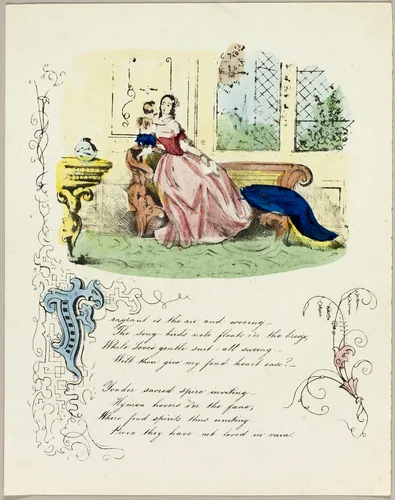 Fragrant is the air and wooing—
The song birds note floats o'er the breeze,
While Loves gentle suit - all sueing—
Wilt thou give my fond heart ease?—
Yonder sacred spire inviting—
Hymen hovers o'er the fane,
Where fond spirits thus uniting—
Prove they have not loved in vain.